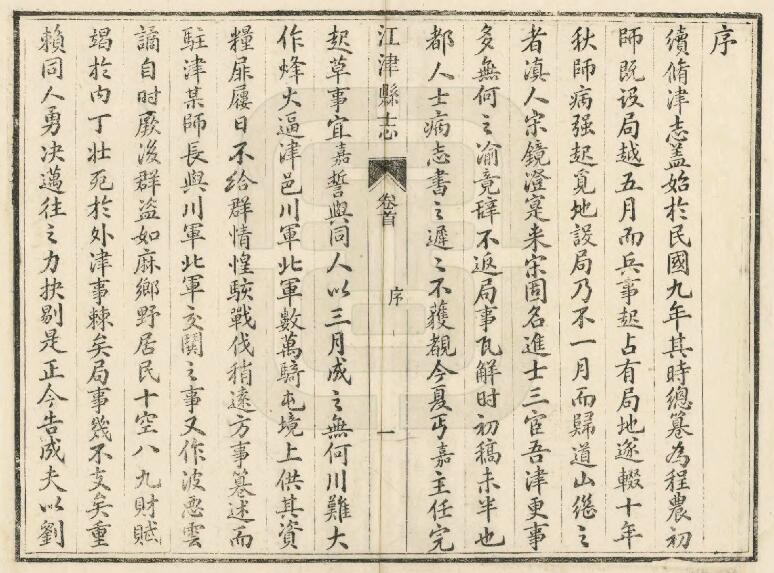 序
續脩津志蓋始於民國九年其時總纂為程農初
師既設局越五月而兵事起占有局地遂輟十年
秋師病强起覓地設局乃不一月而歸道山繼之
者滇人宋鏡澄寔来宋固名進士三宦吾津更事
多無何之渝竟辭不返局事瓦解時初稿未半也
都人士病志書之遲〻不獲覩今夏丐嘉主任完
江津縣志
卷首
序
一
起草事宜嘉誓與同人以三月成之無何川難大
作烽火逼津邑川軍北軍數萬騎屯境上供其資
糧屝屨日不給群情惶駭戰伐稍遠方事纂述而
駐津某師長與川軍北軍交鬨之事又作波悪雲
譎自时厥後群盗如麻鄉野居民十空八九財賦
竭於内丁壮死於外津事棘矣局事幾不支矣重
賴同人勇决邁往之力抉剔是正今告成夫以劉